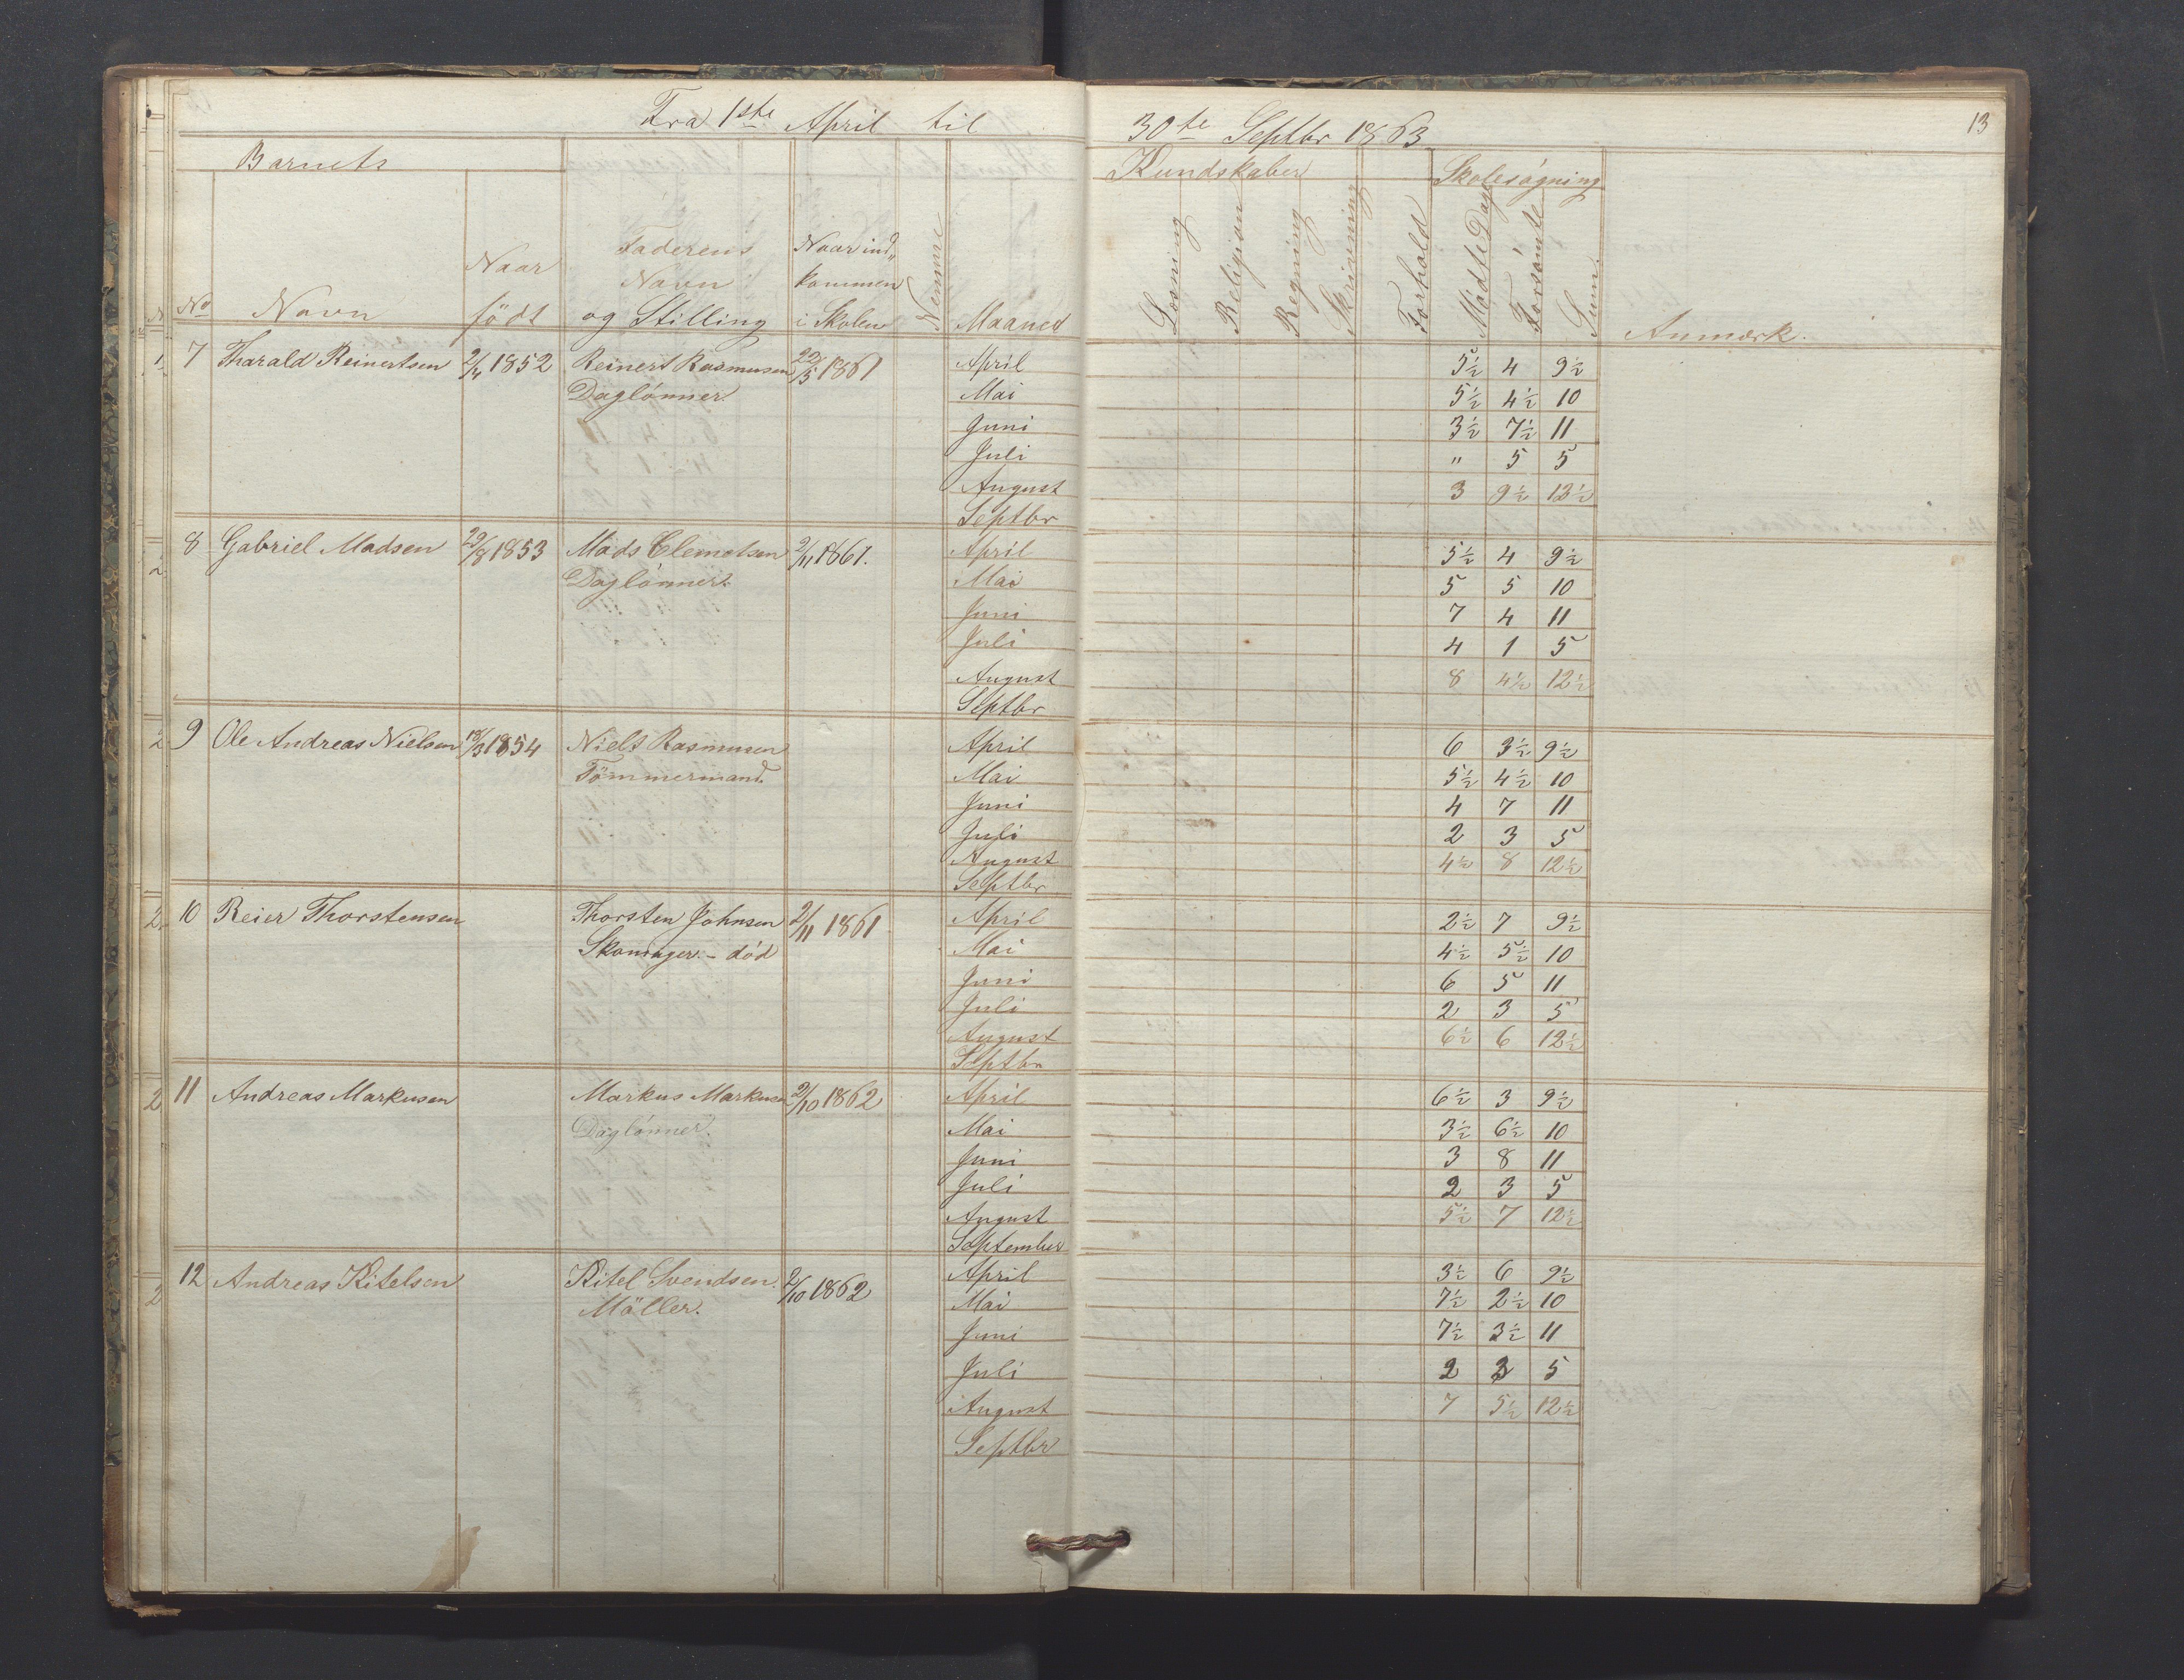 Fra 1ste April til 30te Septbr 1863
13
Barnets
Kundskaber
Skolesøgning
No
Navn
Naar født
Faderens Navn og Stilling
Naar ind„ kommen i Skolen
Nemme
Maaned
Læsning
Religion
Regning
Skrivning
Forhold
Mødte Dage
Forsømte
Sum.
Anmærk.
7 Tharald Reinertsen 2/4 1852 Reinert Rasmusen 22/5 1861 April 5½ 4 9½
Daglönner. Mai 5½ 4½ 10
Juni 3½ 7½ 11
Juli " 5 5
August 3 9½ 12½
Septbr
8 Gabriel Madsen 29/8 1853 Mads Clemetsen 2/11 1861. April 5½ 4 9½
Daglönner. Mai 5 5 10
Juni 7 4 11
Juli 4 1 5
August 8 4½ 12½
Septbr
9 Ole Andreas Nielsen 18/3 1854 Niels Rasmusen April 6 3½ 9½
Tömmermand. Mai 5½ 4½ 10
Juni 4 7 11
Juli 2 3 5
August 4½ 8 12½
Septbr
10 Reier Thorstensen Thorsten Johnsen 2/11 1861 April 2½ 7 9½
Skomager. - död Mai 4½ 5½ 10
Juni 6 5 11
Juli 2 3 5
August 6½ 6 12½
Septbr
11 Andreas Markusen Markus Markusen 2/10 1862 April 6½ 3 9½
Daglönner. Mai 3½ 6½ 10
Juni 3 8 11
Juli 2 3 5
August 5½ 7 12½
September
12 Andreas Kitelsen Kitel Svendsen. 2/10 1862 April 3½ 6 9½
Möller. Mai 7½ 2½ 10
Juni 7½ 3½ 11
Juli 2 3 5
August 7 5½ 12½
Septbr